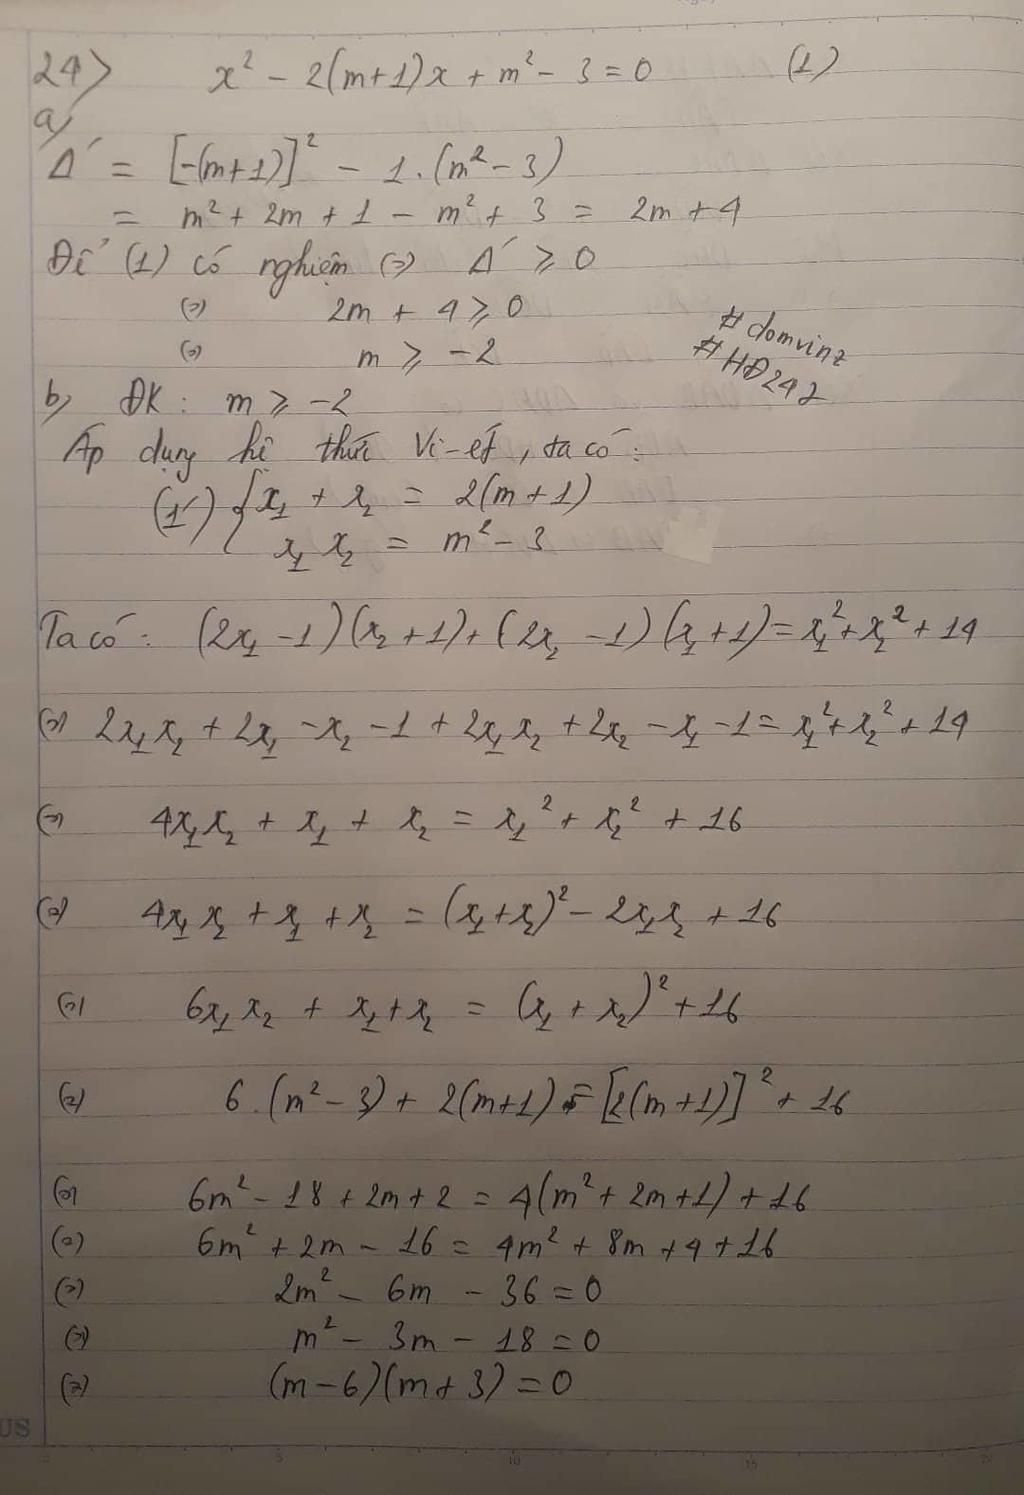 24> x² - 2(m+1)x + m² - 3 = 0 (1)
a,
Δ' = [-(m+1)]² - 1.(m² - 3)
= m² + 2m + 1 - m² + 3 = 2m + 4
Để (1) có nghiệm (=) Δ' ⩾ 0
(=) 2m + 4 ⩾ 0
(=) m ⩾ -2
#domvinz
#HĐ242
b, ĐK: m ⩾ -2
Áp dụng hệ thức Vi-ét, ta có:
(1') { x₁ + x₂ = 2(m+1)
x₁x₂ = m² - 3
Ta có: (2x₁ - 1)(x₂ + 1) + (2x₂ - 1)(x₁ + 1) = x₁² + x₂² + 14
(=) 2x₁x₂ + 2x₁ - x₂ - 1 + 2x₁x₂ + 2x₂ - x₁ - 1 = x₁² + x₂² + 14
(=) 4x₁x₂ + x₁ + x₂ = x₁² + x₂² + 16
(=) 4x₁x₂ + x₁ + x₂ = (x₁+x₂)² - 2x₁x₂ + 16
(=) 6x₁x₂ + x₁ + x₂ = (x₁ + x₂)² + 16
(=) 6.(m² - 3) + 2(m+1) = [2(m+1)]² + 16
(=) 6m² - 18 + 2m + 2 = 4(m² + 2m + 1) + 16
(=) 6m² + 2m - 16 = 4m² + 8m + 4 + 16
(=) 2m² - 6m - 36 = 0
(=) m² - 3m - 18 = 0
(=) (m - 6)(m + 3) = 0
US
5 10 15